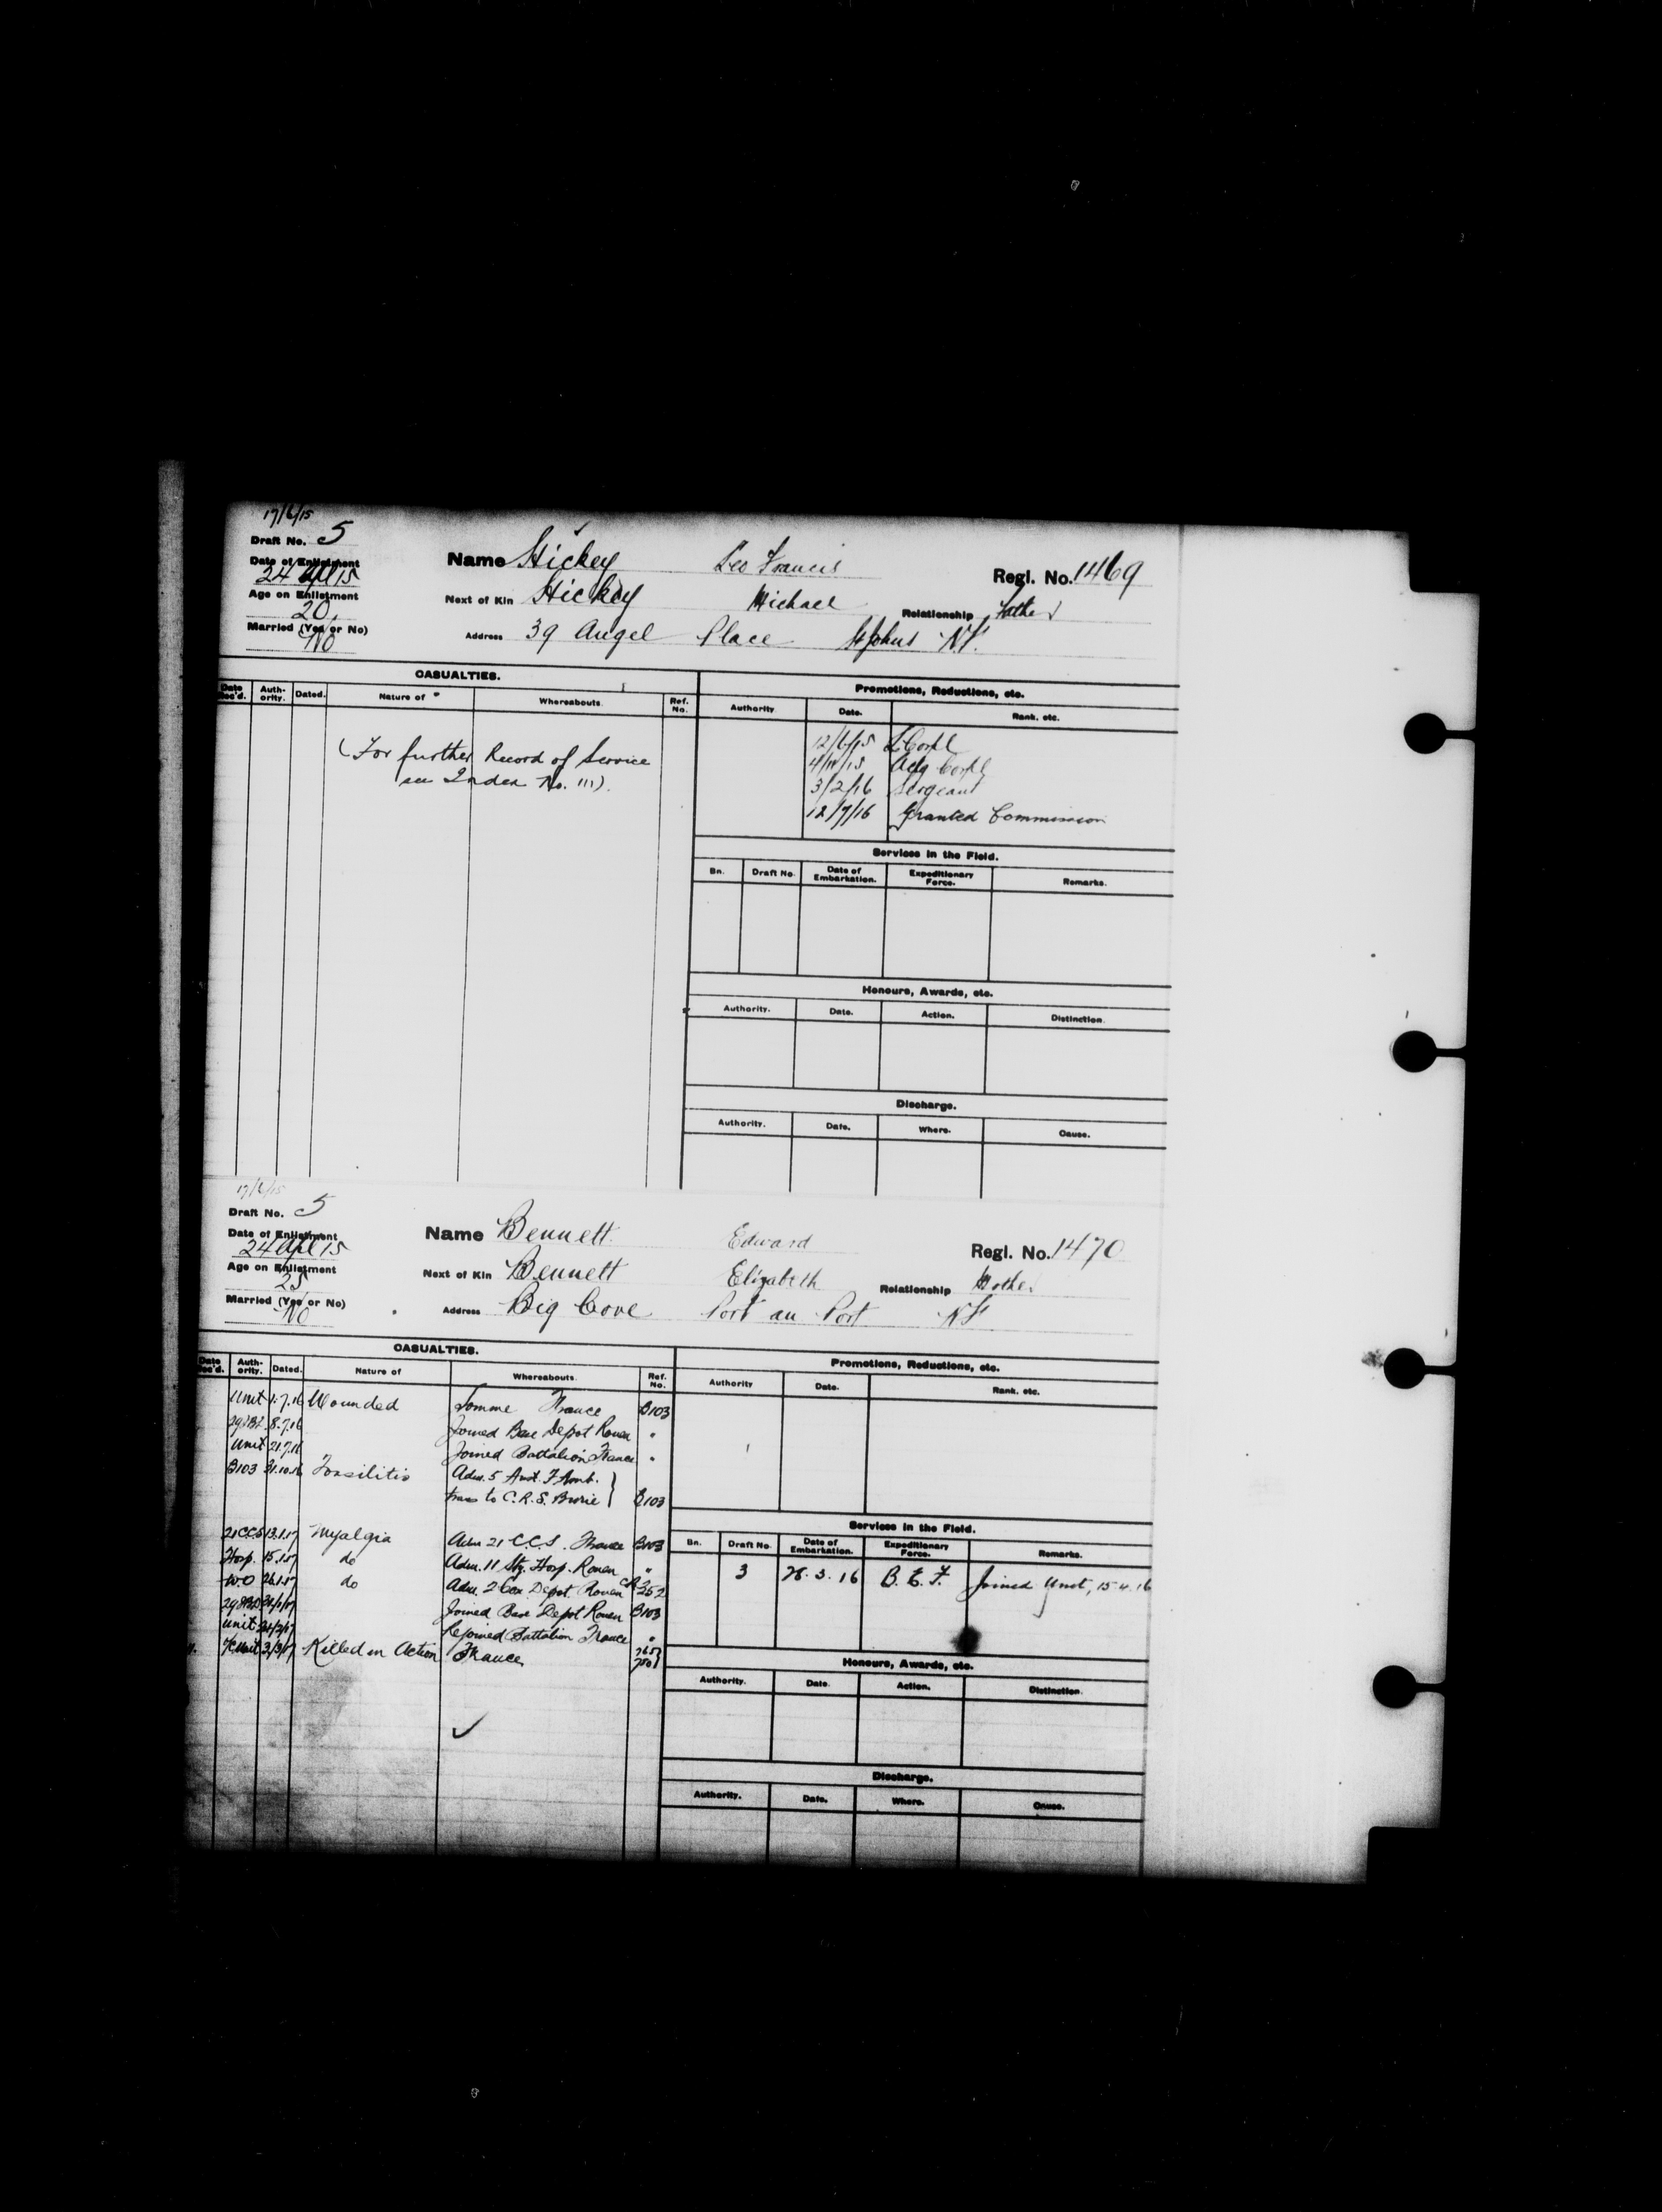 17/6/15
Draft No. 5
Date of Enlistment
24 Apl 15
Name Hickey Leo Francis Regl. No. 1469
Age on Enlistment
20
Next of Kin Hickey Michael Relationship Father
Married (Yes or No)
No
Address 39 Angel Place St Johns N.F.
CASUALTIES.
Date Rec'd. Auth-ority. Dated. Nature of Whereabouts. Ref. No.
(For further Record of Service
see Index No. 111).
Promotions, Reductions, etc.
Authority Date. Rank. etc.
12/6/15 L Corpl
Actg Corpl
3/2/16 Sergeant
12/7/16 Granted Commission
Services in the Field.
Bn. Draft No. Date of Embarkation. Expeditionary Force. Remarks.
Honours, Awards, etc.
Authority. Date. Action. Distinction.
Discharge.
Authority. Date. Where. Cause.
17/6/15
Draft No. 5
Date of Enlistment
24 Apl 15
Name Bennett Edward Regl. No. 1470
Age on Enlistment
25
Next of Kin Bennett Elizabeth Relationship Mother
Married (Yes or No)
No
Address Big Cove Port au Port N.F.
CASUALTIES.
Date Rec'd. Auth-ority. Dated. Nature of Whereabouts. Ref. No.
Unit 1.7.16 Wounded Somme France B103
29 IBD 8.7.16 Joined Base Depot Rouen "
Unit 21.7.16 Joined Battalion France "
B103 31.10.16 Tonsilitis Adm. 5 Aust. F Amb.
trans to C.R.S. B103
21 CCS 13.1.17 Myalgia Adm 21 C.C.S. France B103
Hosp. 15.1.17 do Adm. 11 Sty. Hosp. Rouen "
W.O 26.1.17 do Adm. 2 Con. Depot Rouen CR 252
Joined Base Depot Rouen B103
Unit Rejoined Battalion France "
O/C Unit 3/3/17 Killed in Action France
Promotions, Reductions, etc.
Authority Date. Rank. etc.
Services in the Field.
Bn. Draft No. Date of Embarkation. Expeditionary Force. Remarks.
3 3.16 B.E.F. Joined Unit, 15.4.16
Honours, Awards, etc.
Authority. Date. Action. Distinction.
Discharge.
Authority. Date. Where. Cause.